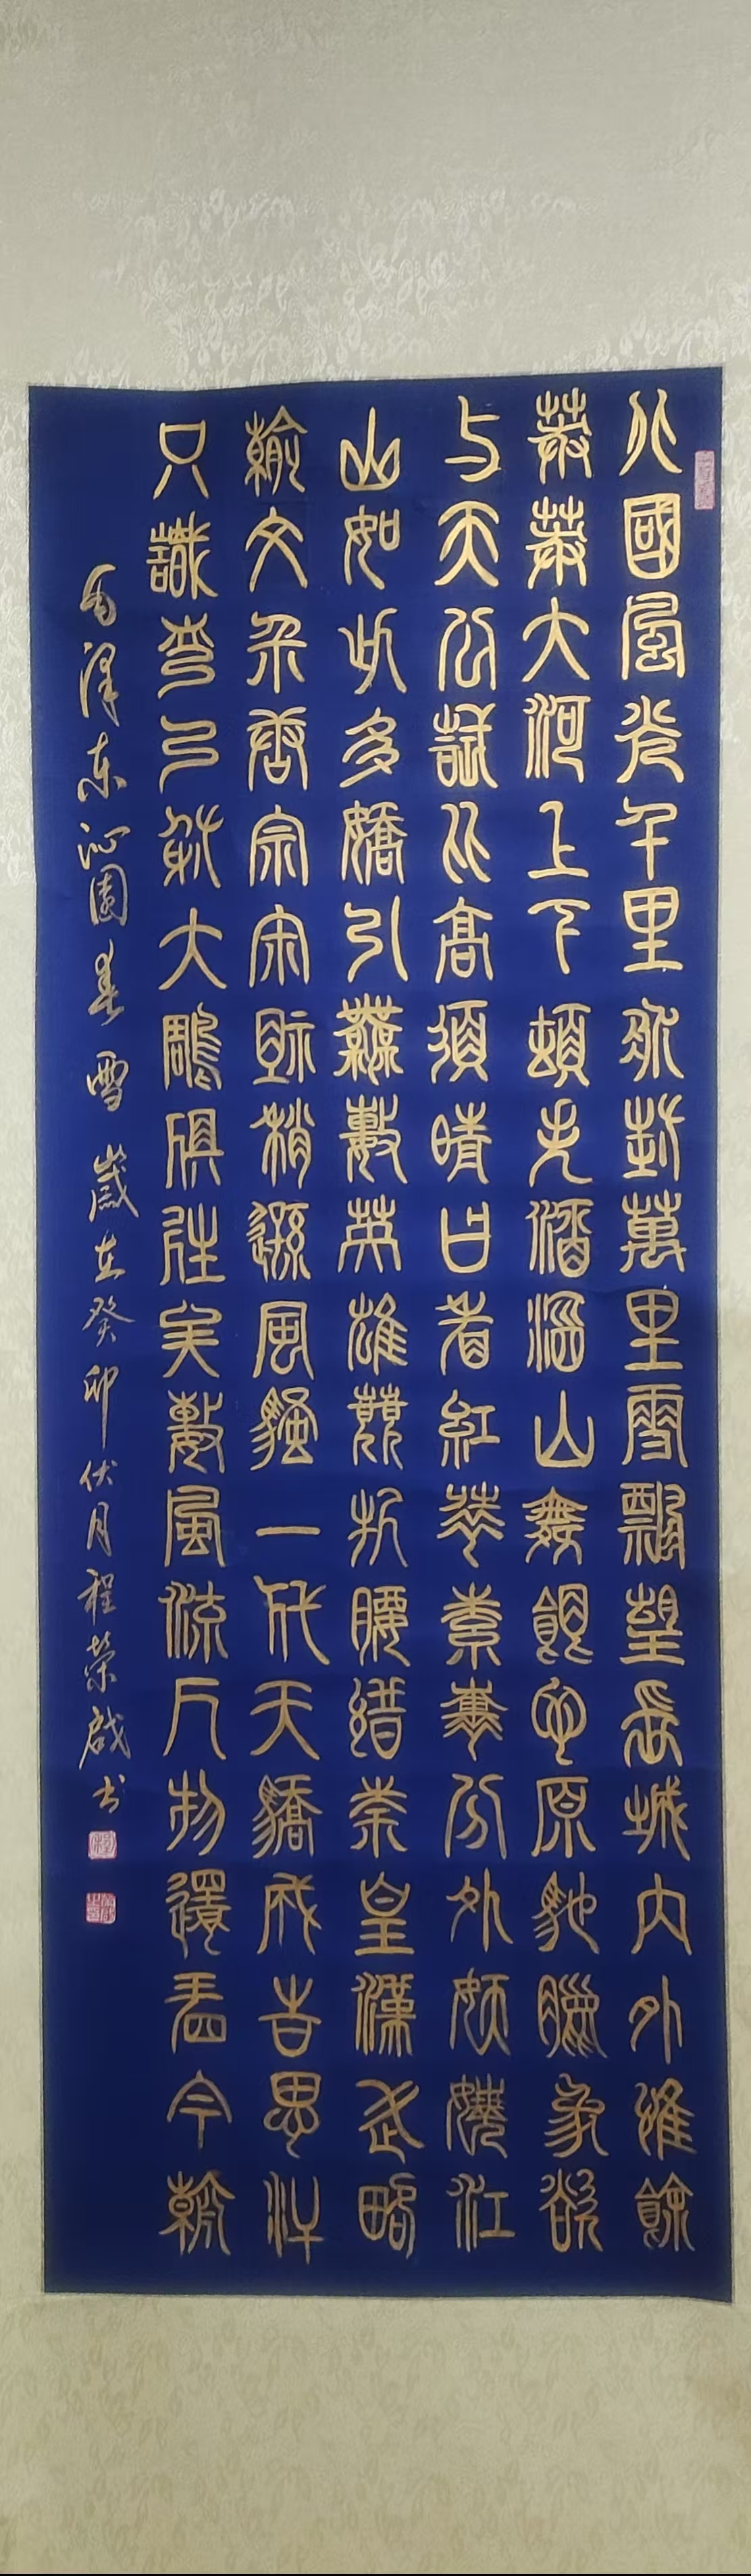 北國風光千里冰封萬里雪飄望長城內外惟餘
莽莽大河上下頓失滔滔山舞銀蛇原馳蠟象欲
与天公試比高須晴日看紅裝素裹分外妖嬈江
山如此多嬌引無數英雄競折腰惜秦皇漢武略
輸文采唐宗宋祖稍遜風騷一代天驕成吉思汗
只識彎弓射大雕俱往矣數風流人物還看今朝
毛澤东沁園春 雪 歲在癸卯伏月程榮啟书